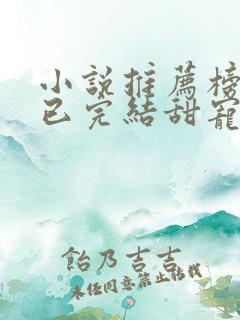 小說推薦榜
已完結甜寵
飴乃吉吉
未经同意禁止转载